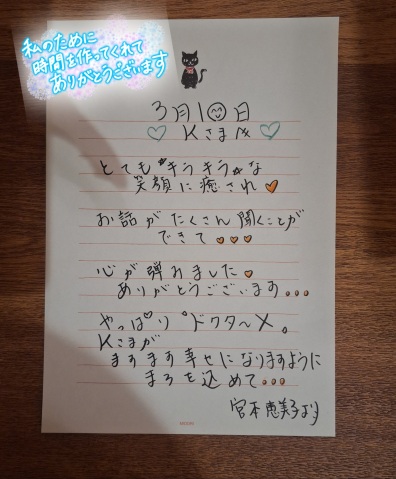 私のために
時間を作ってくれて
ありがとうございます
3月10日
Kさまへ
とても キラキラな
笑顔に癒され
お話がたくさん聞くことが
できて
心が弾みました
ありがとうございます...
やっぱり"ドクタ〜X。
Kさまが
ますます幸せになりますように
まろを込めて...
宮本恵美子より